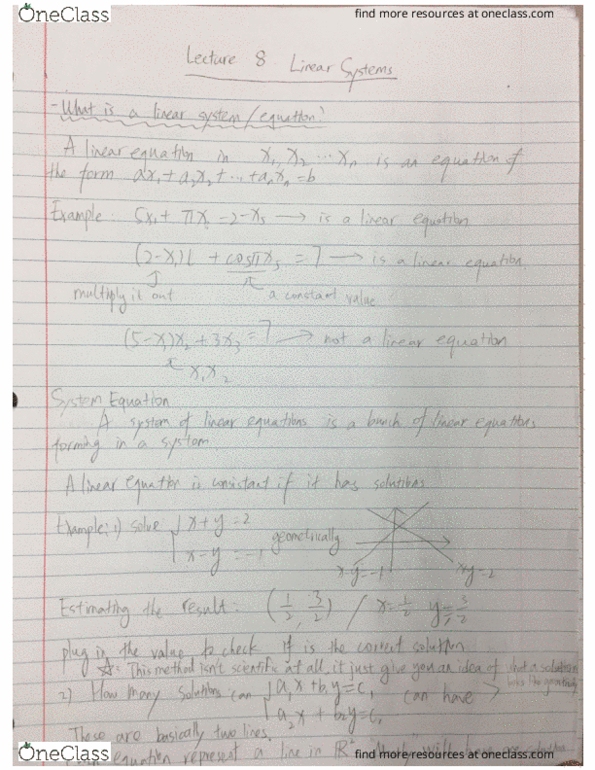 OneClass
find more resources at oneclass.com
Lecture 8 Linear Systems
- What is a linear system/equation?
A linear equation in x₁, x₂ ... xₙ is an equation of
the form ax₁ + a₂x₂ + ... + aₙxₙ = b
Example: 5x₁ + πx = 2 - x₅ → is a linear equation
(2-x₁) + cosπx₅ = 7 → is a linear equation
multiply it out a constant value
(5-x₁)x₂ + 3x₃ = 7 → not a linear equation
x₁x₂
System Equation
A system of linear equations is a bunch of linear equations
forming in a system
A linear equation is consistant if it has solutions
Example: 1) solve x + y = 2
x - y = -1
geometrically
x-y=-1 x+y=2
Estimating the result: (1/2, 3/2) / x = 1/2 y = 3/2
plug in the value to check if is the correct solution
☆: This method isn't scientific at all, it just give you an idea of what a solution
looks like
2) How many solutions can a₁x + b₁y = c₁ can have
a₂x + b₂y = c₂
These are basically two lines,
equation represent a line in ℝ²
OneClass
find more resources at oneclass.com